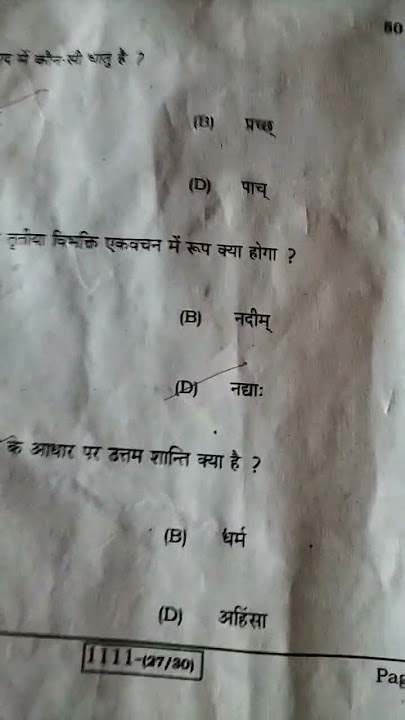 50
में कौन-सी धातु है ?
(B) प्रच्छ्
(D) पाच्
तृतीया विभक्ति एकवचन में रूप क्या होगा ?
(B) नदीम्
(D) नद्याः
के आधार पर उत्तम शान्ति क्या है ?
(B) धर्म
(D) अहिंसा
1111-(27/30)
Pag